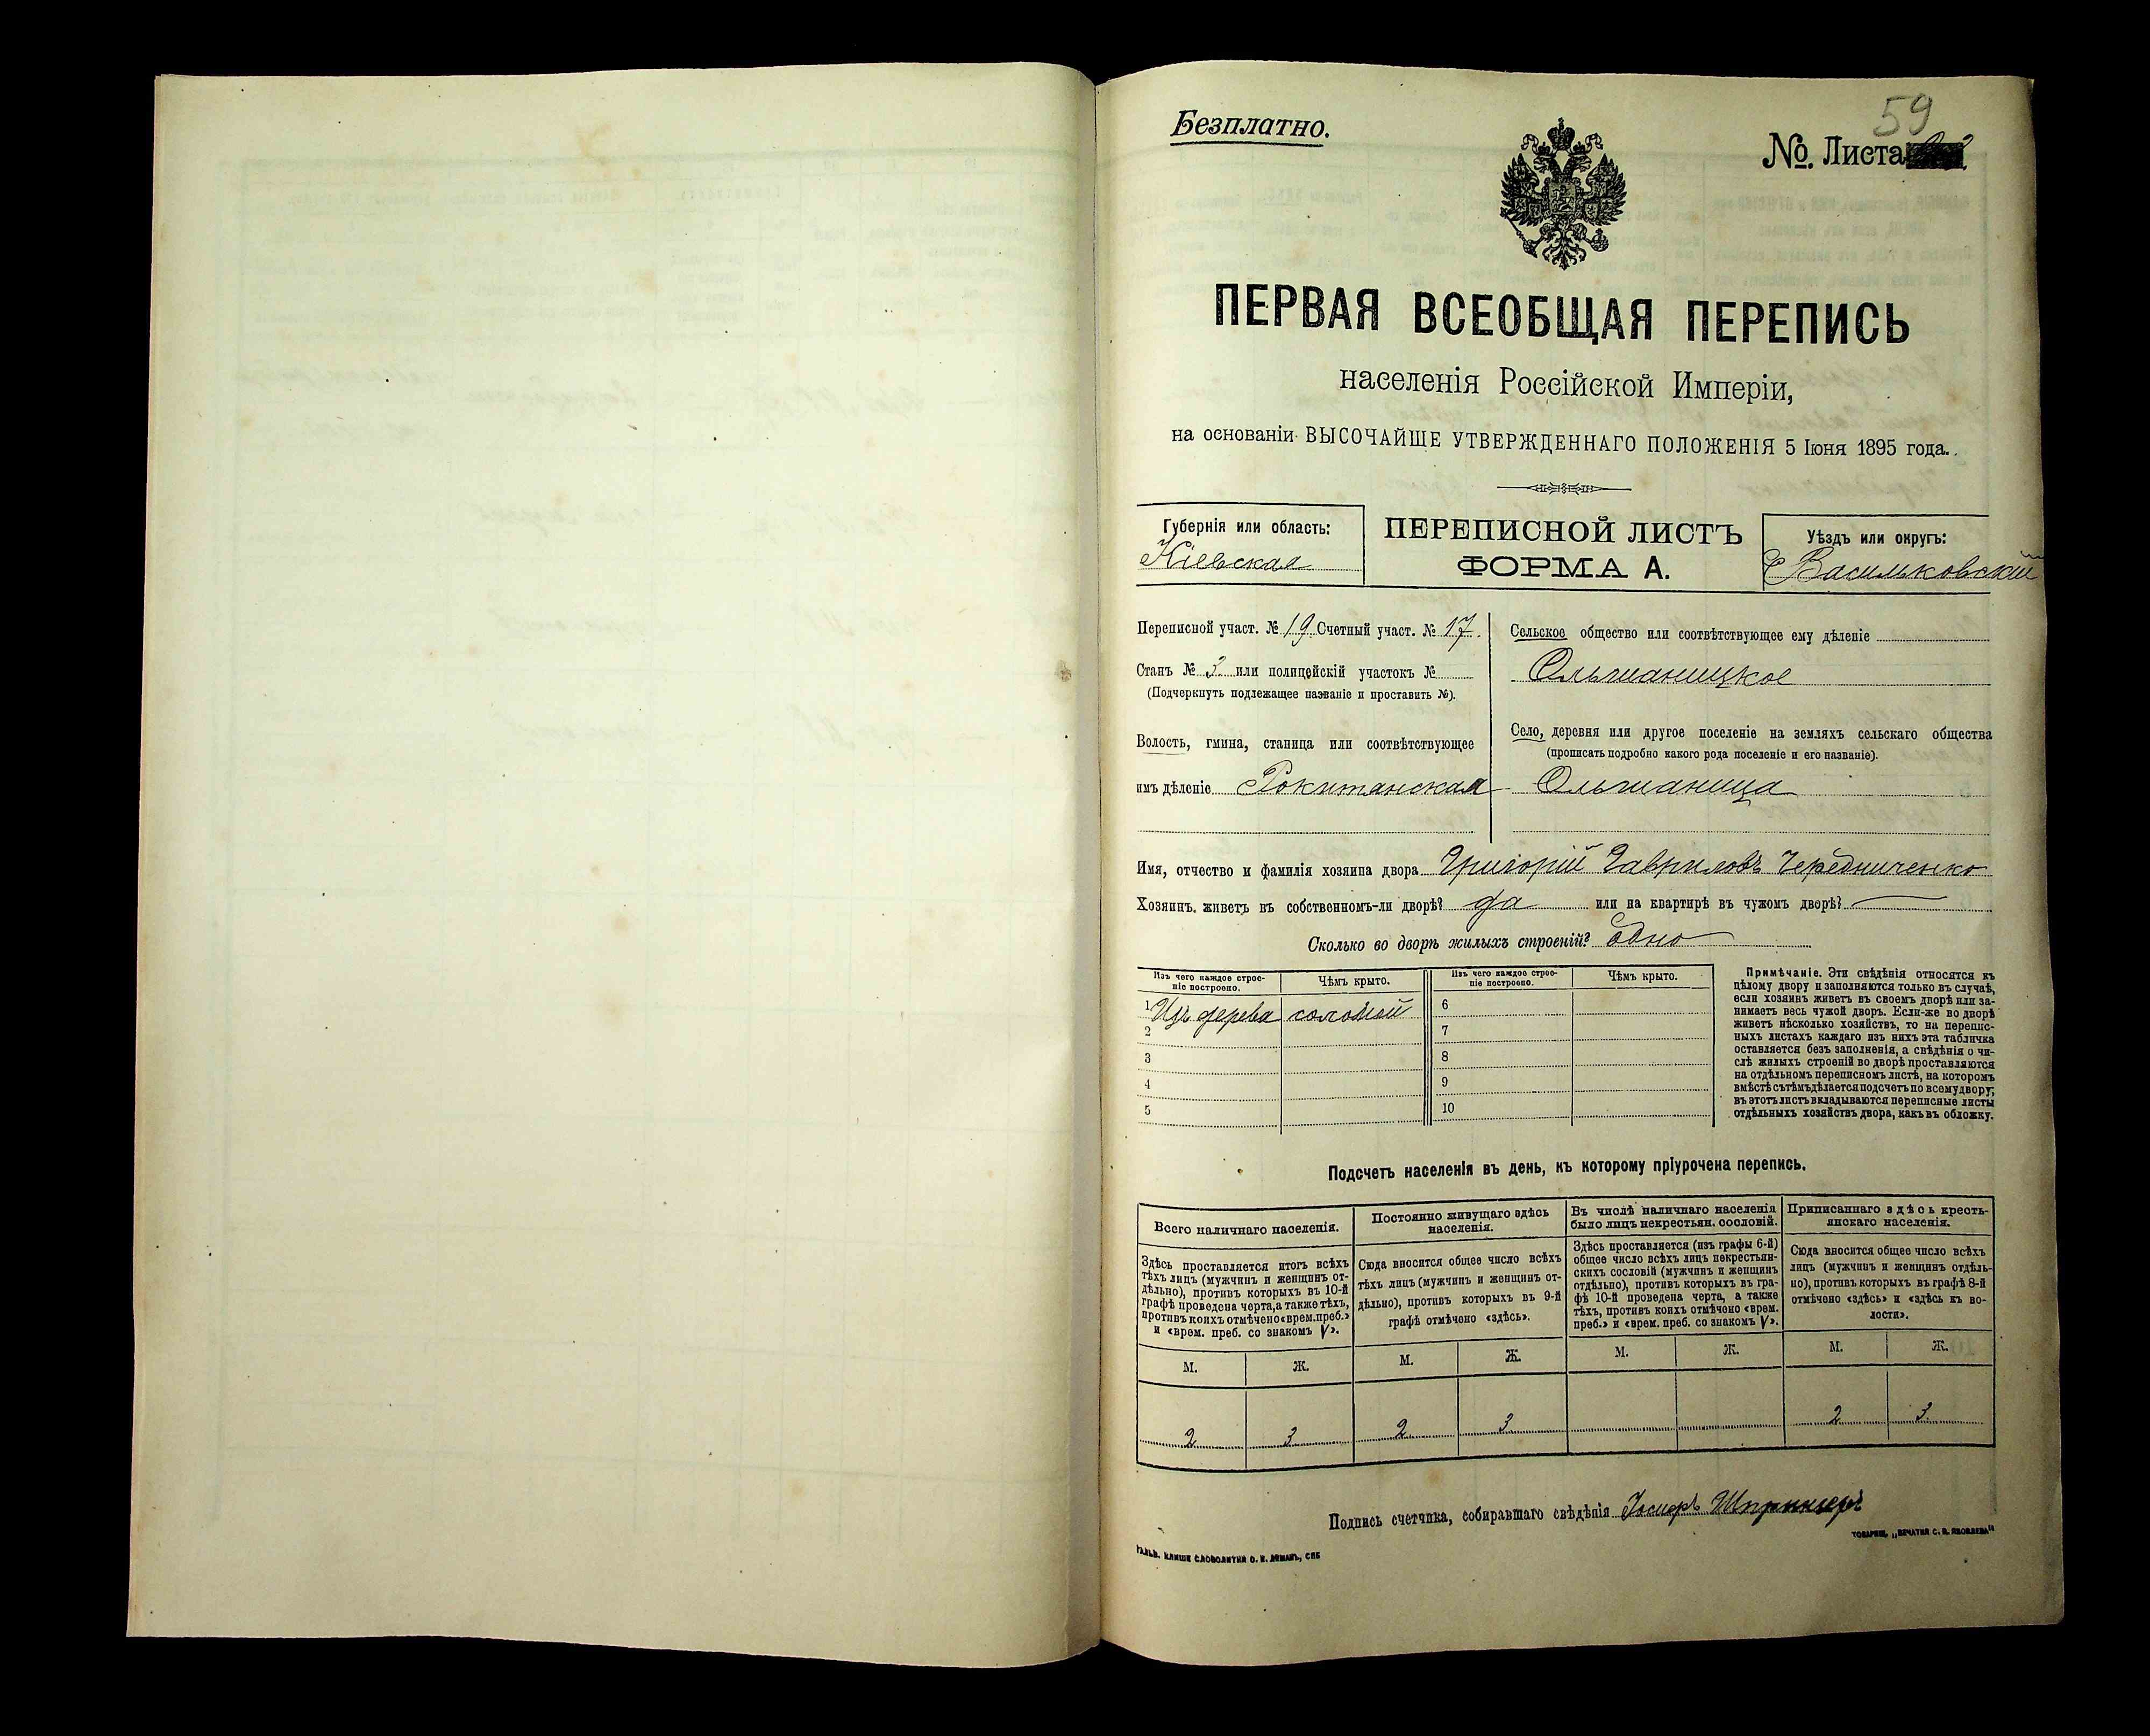 59
Безплатно.
№. Листа
ПЕРВАЯ ВСЕОБЩАЯ ПЕРЕПИСЬ
населенія Россійской Имперіи,
на основаніи ВЫСОЧАЙШЕ УТВЕРЖДЕННАГО ПОЛОЖЕНІЯ 5 Іюня 1895 года.
Губернія или область:
Кіевская
ПЕРЕПИСНОЙ ЛИСТЪ
ФОРМА А.
Уѣздъ или округъ:
Васильковскій
Переписной участ. № 19 Счетный участ. № 17.
Станъ № 3 или полицейскій участокъ №
(Подчеркнуть подлежащее названіе и проставить №).
Волость, гмина, станица или соотвѣтствующее
имъ дѣленіе Рокитанская
Сельское общество или соотвѣтствующее ему дѣленіе
Ольшаницкое
Село, деревня или другое поселеніе на земляхъ сельскаго общества
(прописать подробно какого рода поселеніе и его названіе).
Ольшаница
Имя, отчество и фамилія хозяина двора Григорій Гавриловъ Чередниченко
Хозяинъ живетъ въ собственномъ-ли дворѣ? да или на квартирѣ въ чужомъ дворѣ? —
Сколько во дворѣ жилыхъ строеній? Одно
Изъ чего каждое строе-
ніе построено.
Чѣмъ крыто.
Изъ чего каждое строе-
ніе построено.
Чѣмъ крыто.
1 Изъ дерева соломой 6
2 7
3 8
4 9
5 10
Примѣчаніе. Эти свѣдѣнія относятся къ
цѣлому двору и заполняются только въ случаѣ,
если хозяинъ живетъ въ своемъ дворѣ или за-
нимаетъ весь чужой дворъ. Если-же во дворѣ
живетъ нѣсколько хозяйствъ, то на перепис-
ныхъ листахъ каждаго изъ нихъ эта табличка
оставляется безъ заполненія, а свѣдѣнія о чи-
слѣ жилыхъ строеній во дворѣ проставляются
на отдѣльномъ переписномъ листѣ, на которомъ
вмѣстѣ съ тѣмъ дѣлается подсчетъ по всему двору;
въ этотъ листъ вкладываются переписные листы
отдѣльныхъ хозяйствъ двора, какъ въ обложку.
Подсчетъ населенія въ день, къ которому пріурочена перепись.
Всего наличнаго населенія.
Постоянно живущаго здѣсь
населенія.
Въ числѣ наличнаго населенія
было лицъ некрестьян. сословій.
Приписаннаго здѣсь кресть-
янскаго населенія.
Здѣсь проставляется итогъ всѣхъ
тѣхъ лицъ (мужчинъ и женщинъ от-
дѣльно), противъ которыхъ въ 10-й
графѣ проведена черта, а также тѣхъ,
противъ коихъ отмѣчено «врем. преб.»
и «врем. преб. со знакомъ V».
Сюда вносится общее число всѣхъ
тѣхъ лицъ (мужчинъ и женщинъ от-
дѣльно), противъ которыхъ въ 9-й
графѣ отмѣчено «здѣсь».
Здѣсь проставляется (изъ графы 6-й)
общее число всѣхъ лицъ некрестьян-
скихъ сословій (мужчинъ и женщинъ
отдѣльно), противъ которыхъ въ гра-
фѣ 10-й проведена черта, а также
тѣхъ, противъ коихъ отмѣчено «врем.
преб.» и «врем. преб. со знакомъ V».
Сюда вносится общее число всѣхъ
лицъ (мужчинъ и женщинъ отдѣль-
но), противъ которыхъ въ графѣ 8-й
отмѣчено «здѣсь» и «здѣсь къ во-
лости».
М. Ж. М. Ж. М. Ж. М. Ж.
2 3 2 3 2 3
Подпись счетчика, собиравшаго свѣдѣнія Іосифъ Шпрингеръ
ГАЛЬВ. КЛИШЕ СЛОВОЛИТНИ О. И. ЛЕМАНЪ, СПБ
ТОВАРИЩ. „ПЕЧАТНЯ С. П. ЯКОВЛЕВА“